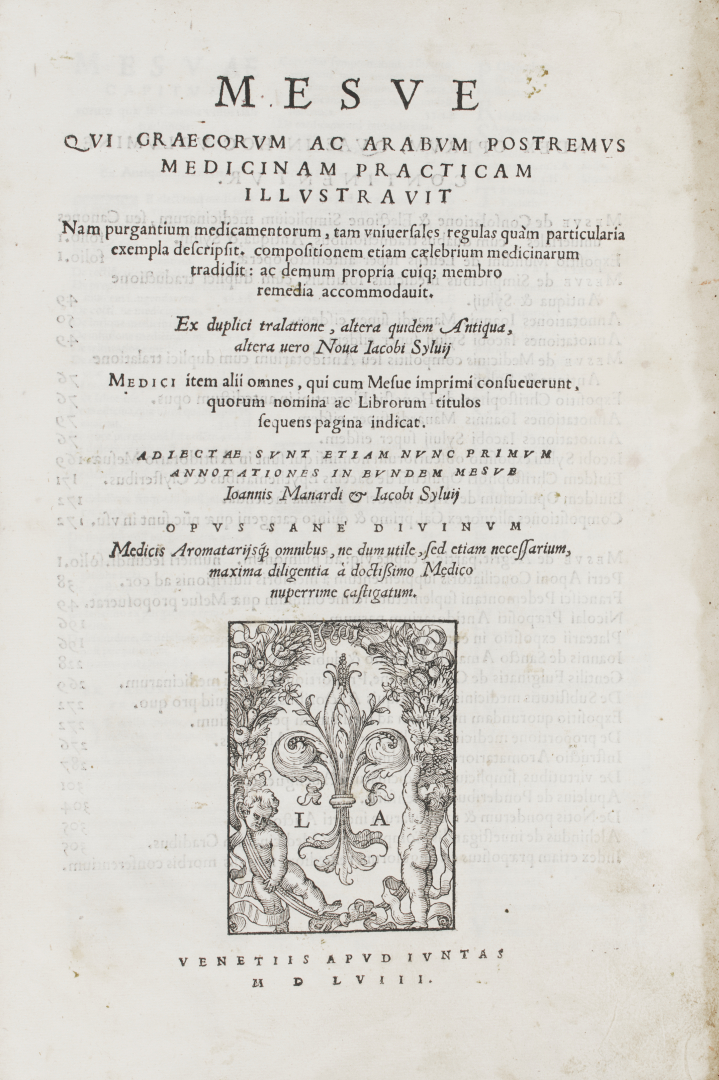 MESVE
QVI GRAECORVM AC ARABVM POSTREMVS
MEDICINAM PRACTICAM
ILLVSTRAVIT
Nam purgantium medicamentorum, tam vniuerſales regulas quàm particularia
exempla deſcripſit. compoſitionem etiam cælebrium medicinarum
tradidit: ac demum propria cuiq; membro
remedia accommodauit.
Ex duplici tralatione, altera quidem Antiqua,
altera uero Noua Iacobi Syluij
MEDICI item alii omnes, qui cum Meſue imprimi conſueuerunt,
quorum nomina ac Librorum titulos
ſequens pagina indicat.
ADIECTAE SVNT ETIAM NVNC PRIMVM
ANNOTATIONES IN EVNDEM MESVE
Ioannis Manardi & Iacobi Syluij
OPVS SANE' DIVINVM
Medicis Aromatarijsq́; omnibus, ne dum utile, ſed etiam neceſſarium,
maxima diligentia à doctißimo Medico
nuperrime caſtigatum.
L A
VENETIIS APVD IVNTAS
M D LVIII.